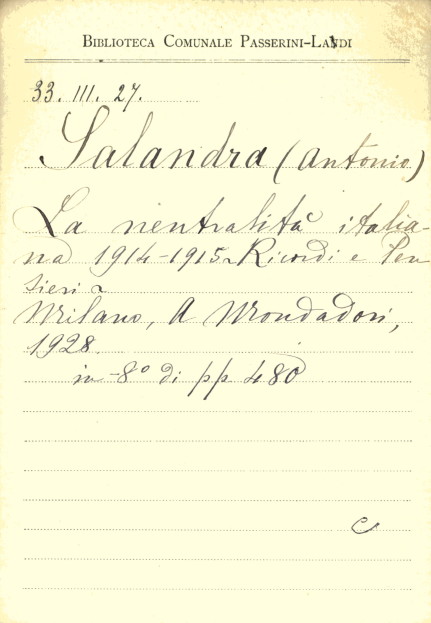 BIBLIOTECA COMUNALE PASSERINI-LANDI
33. III. 27.
Salandra (Antonio)
La neutralità italia-
na 1914-1915 ~ Ricordi e Pen
sieri ~
Milano, A Mondadori,
1928.
in -8° di pp 480
C